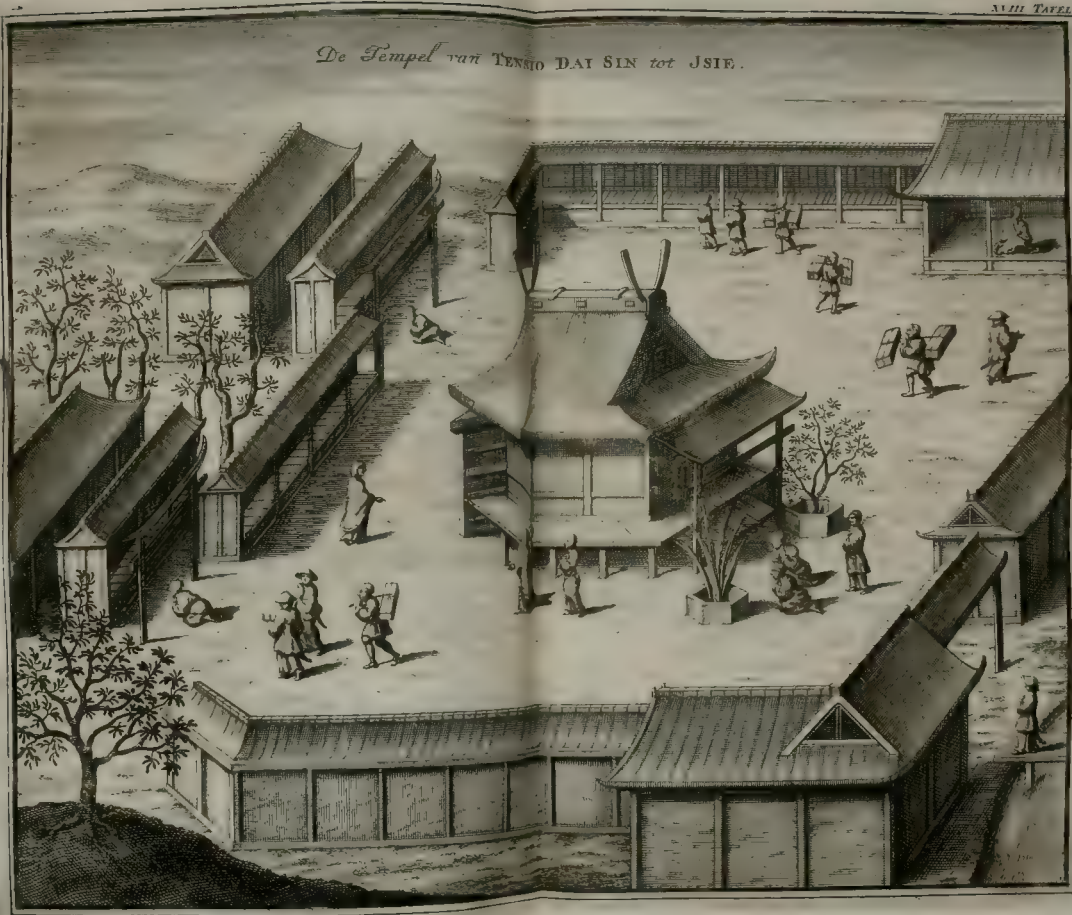 XVIII TAFEL
De Tempel van TENSIO DAI SIN tot JSIE.